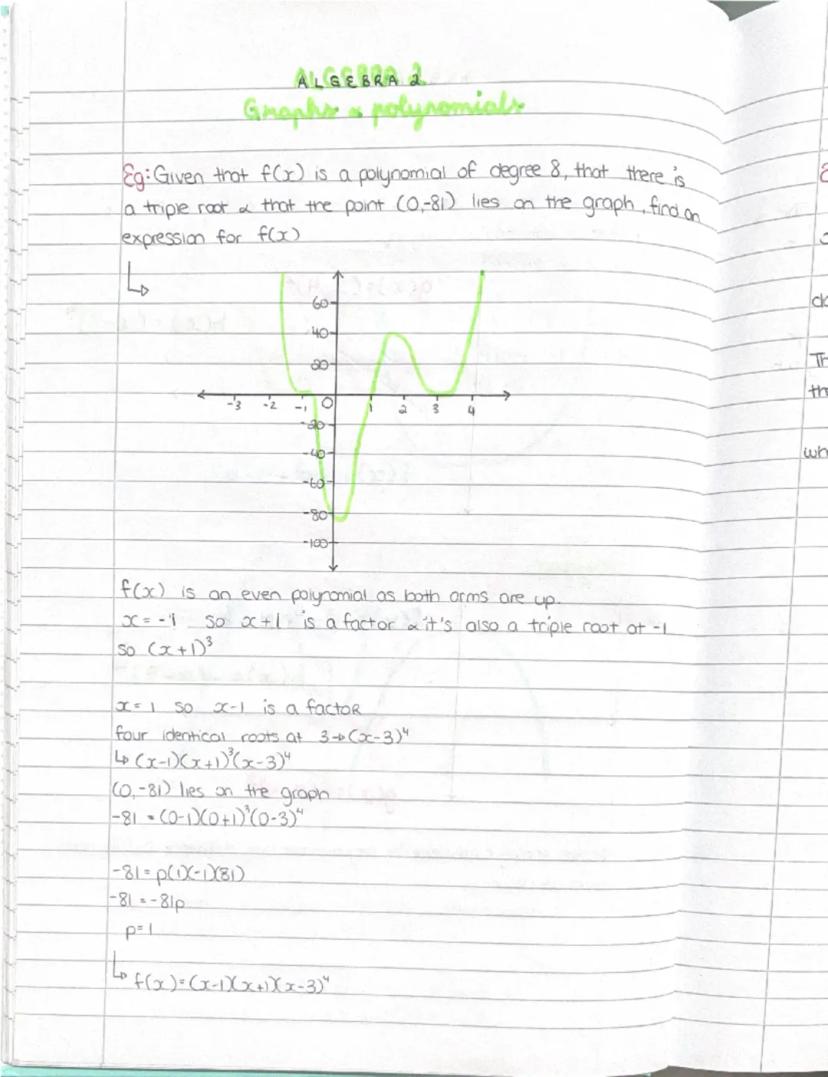 ALGEBRA 2
Graphs & polynomials
Eg: Given that f(x) is a polynomial of degree 8, that there is
a triple root & that the point (0,-81) lies on the graph, find an
expression for f(x)
60
40
20
-3 -2 -1 0 1 2 3 4
-20
-40
-60
-80
-100
f(x) is an even polynomial as both arms are up.
x = -1 so x+1 is a factor & it's also a triple root at -1
so (x+1)³
x = 1 so x-1 is a factor
four identical roots at 3→(x-3)⁴
↳ (x-1)(x+1)³(x-3)⁴
(0,-81) lies on the graph
-81 = (0-1)(0+1)³(0-3)⁴
-81 = p(1)(-1)(81)
-81 = -81p
p=1
↳ f(x)=(x-1)(x+1)(x-3)⁴